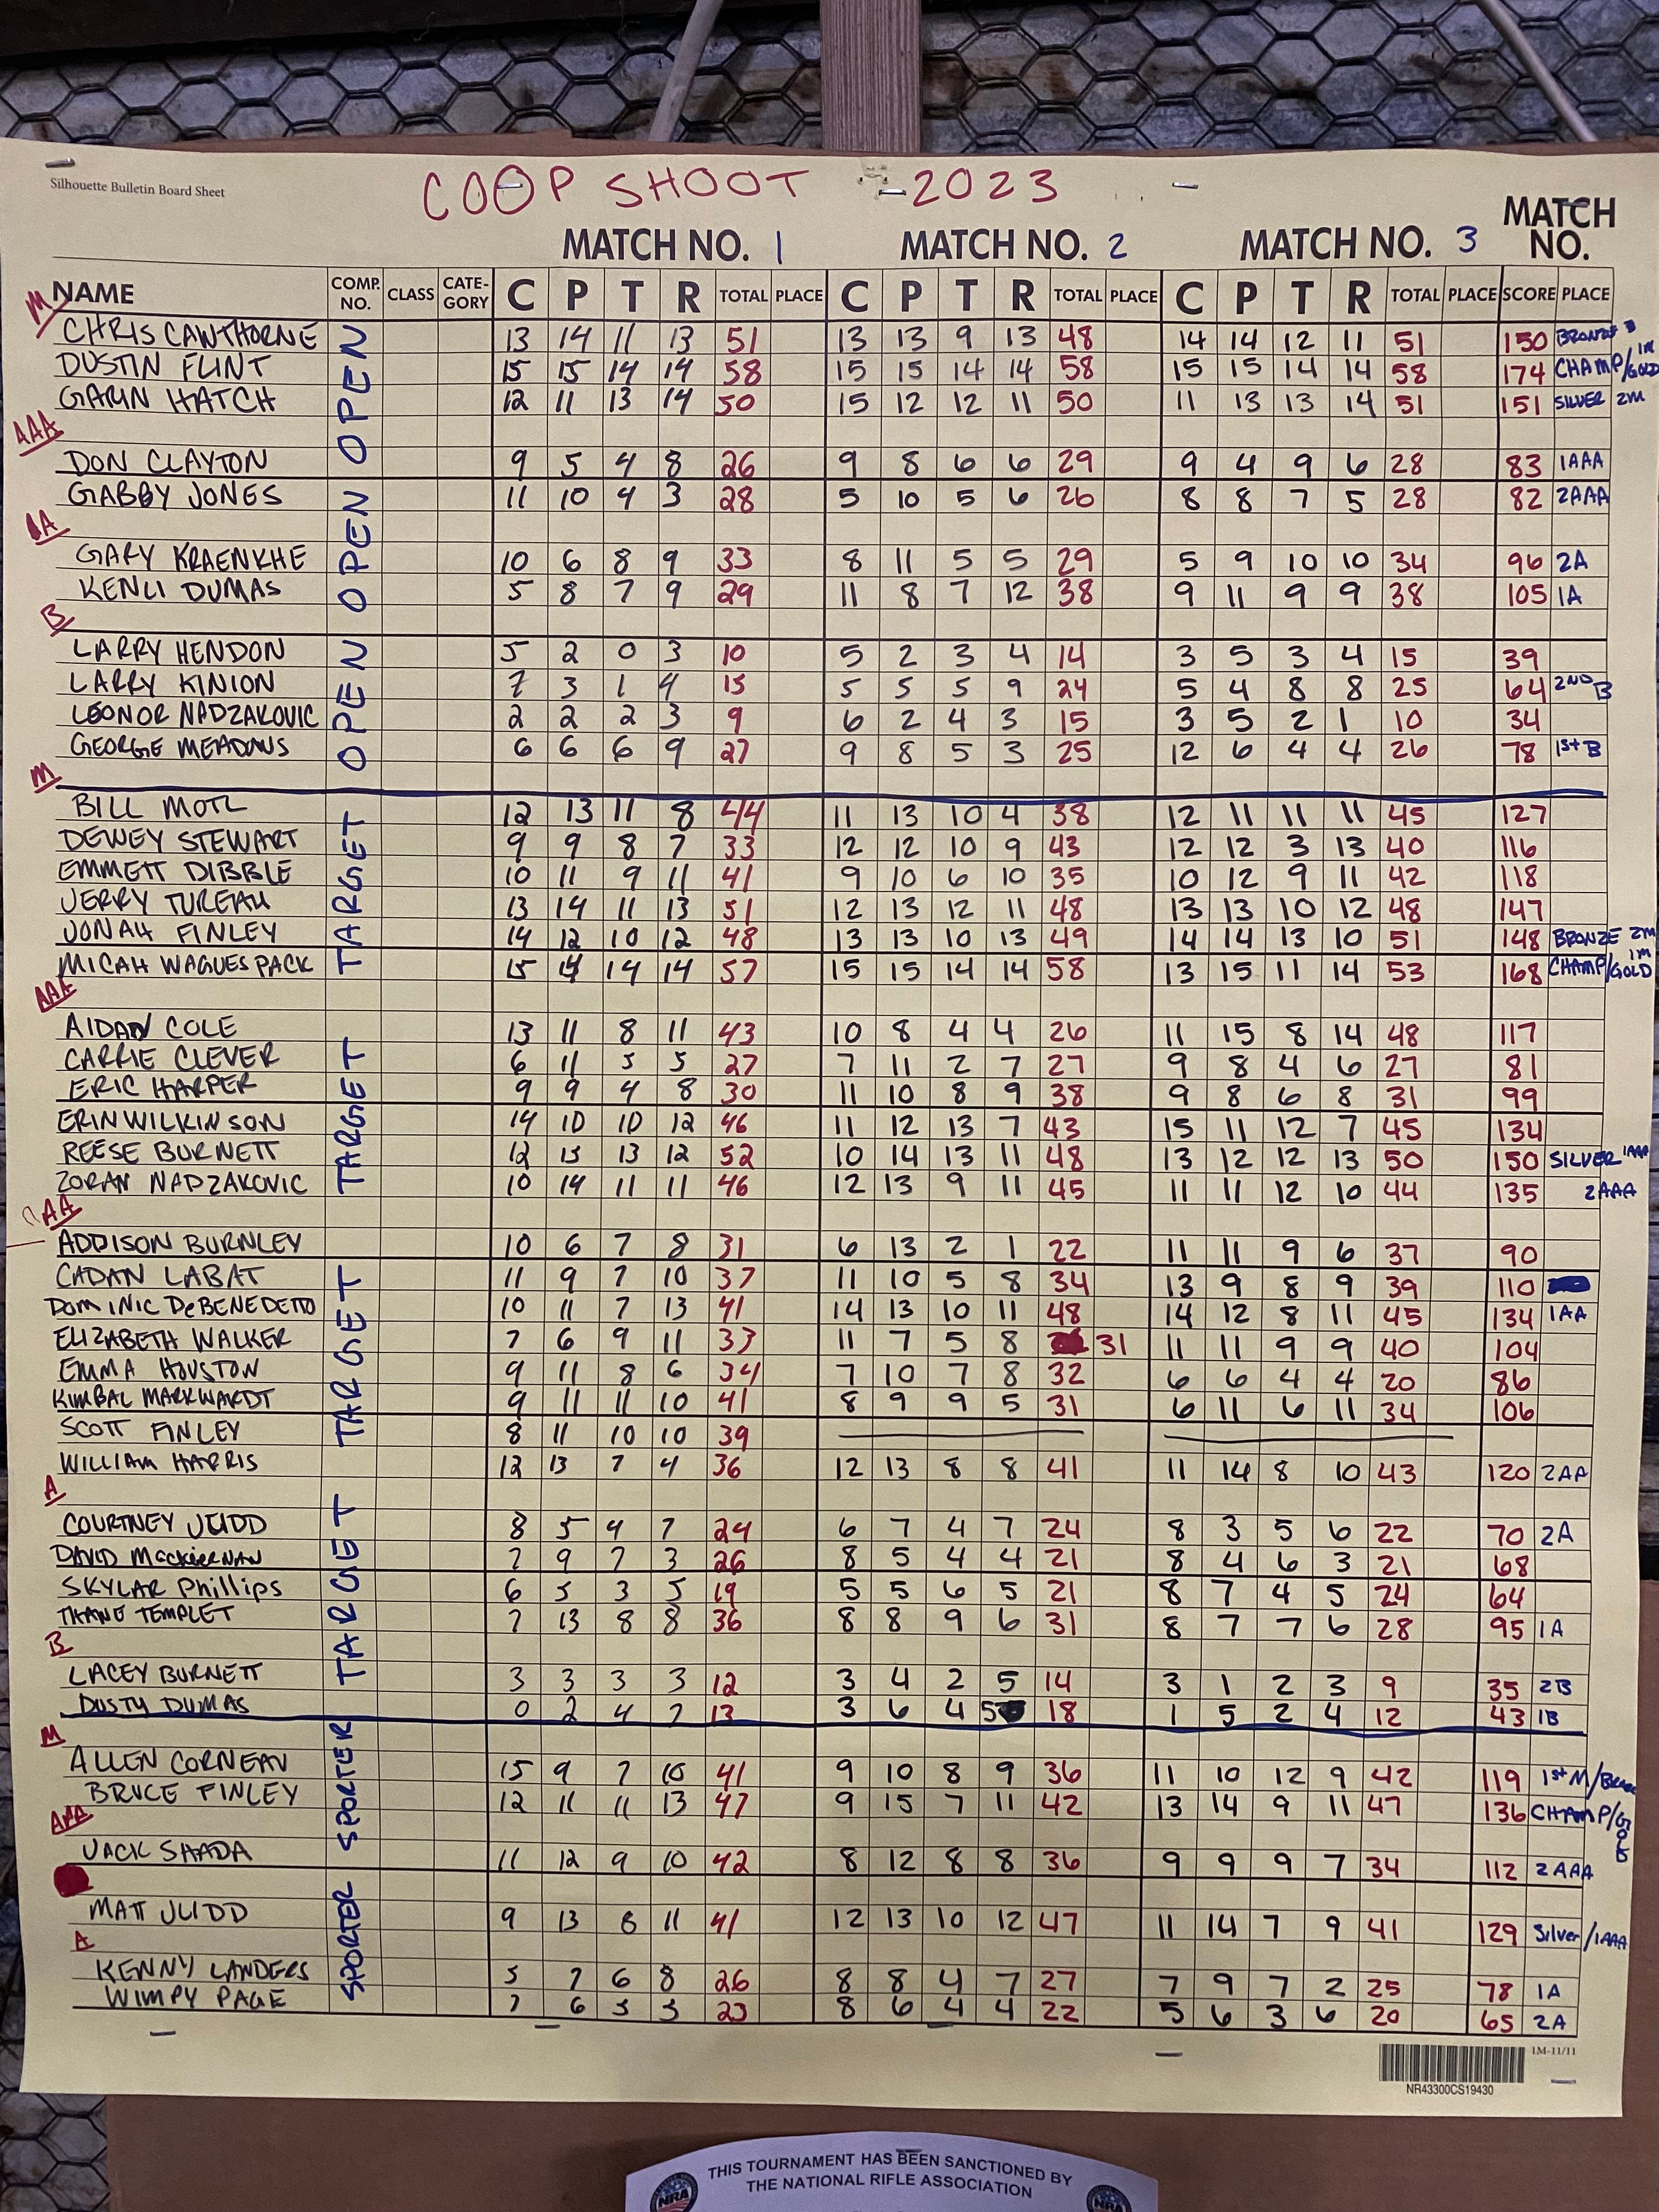 Silhouette Bulletin Board Sheet
COOP SHOOT - 2023
MATCH NO. 1 MATCH NO. 2 MATCH NO. 3 MATCH NO.
NAME COMP. NO. CLASS CATE-GORY C P T R TOTAL PLACE C P T R TOTAL PLACE C P T R TOTAL PLACE SCORE PLACE
M
OPEN
CHRIS CAWTHORNE 13 14 11 13 51 13 13 9 13 48 14 14 12 11 51 150 BRONZE
DUSTIN FLINT 15 15 14 14 58 15 15 14 14 58 15 15 14 14 58 174 CHAMP/GOLD 1M
GARIN HATCH 12 11 13 14 50 15 12 12 11 50 11 13 13 14 51 151 SILVER 2M
AAA
DON CLAYTON 9 5 4 8 26 9 8 6 6 29 9 4 9 6 28 83 1AAA
OPEN
GABBY JONES 11 10 4 3 28 5 10 5 6 26 8 8 7 5 28 82 2AAA
A
GARY KRAENKHE 10 6 8 9 33 8 11 5 5 29 5 9 10 10 34 96 2A
KENLI DUMAS 5 8 7 9 29 11 8 7 12 38 9 11 9 9 38 105 1A
B
OPEN
LARRY HENDON 5 2 0 3 10 5 2 3 4 14 3 5 3 4 15 39
LARRY KINION 7 3 1 4 15 5 5 5 9 24 5 4 8 8 25 64 2ND B
LEONOR NADZAKOVIC 2 2 2 3 9 6 2 4 3 15 3 5 2 1 10 34
GEORGE MEADOWS 6 6 6 9 27 9 8 5 3 25 12 6 4 4 26 78 1st B
M
TARGET
BILL MOTL 12 13 11 8 44 11 13 10 4 38 12 11 11 11 45 127
DEWEY STEWART 9 9 8 7 33 12 12 10 9 43 12 12 3 13 40 116
EMMETT DIBBLE 10 11 9 11 41 9 10 6 10 35 10 12 9 11 42 118
JERRY TUREAU 13 14 11 13 51 12 13 12 11 48 13 13 10 12 48 147
JONAH FINLEY 14 12 10 12 48 13 13 10 13 49 14 14 13 10 51 148 BRONZE 2M
MICAH WAGUESPACK 15 14 14 14 57 15 15 14 14 58 13 15 11 14 53 168 CHAMP/GOLD 1M
AAA
TARGET
AIDAN COLE 13 11 8 11 43 10 8 4 4 26 11 15 8 14 48 117
CARRIE CLEVER 6 11 5 5 27 7 11 2 7 27 9 8 4 6 27 81
ERIC HARPER 9 9 4 8 30 11 10 8 9 38 9 8 6 8 31 99
ERIN WILKINSON 14 10 10 12 46 11 12 13 7 43 15 11 12 7 45 134
REESE BURNETT 12 15 13 12 52 10 14 13 11 48 13 12 12 13 50 150 SILVER 1AAA
ZORAN NADZAKOVIC 10 14 11 11 46 12 13 9 11 45 11 11 12 10 44 135 2AAA
AA
TARGET
ADDISON BURNLEY 10 6 7 8 31 6 13 2 1 22 11 11 9 6 37 90
CADAN LABAT 11 9 7 10 37 11 10 5 8 34 13 9 8 9 39 110
DOMINIC DeBENEDETTO 10 11 7 13 41 14 13 10 11 48 14 12 8 11 45 134 1AA
ELIZABETH WALKER 7 6 9 11 33 11 7 5 8 31 11 11 9 9 40 104
EMMA HOUSTON 9 11 8 6 34 7 10 7 8 32 6 6 4 4 20 86
KIMBAL MARKWARDT 9 11 11 10 41 8 9 9 5 31 6 11 6 11 34 106
SCOTT FINLEY 8 11 10 10 39
WILLIAM HARRIS 12 13 7 4 36 12 13 8 8 41 11 14 8 10 43 120 2AA
A
TARGET
COURTNEY JUDD 8 5 4 7 24 6 7 4 7 24 8 3 5 6 22 70 2A
DAVID MacKieRNAN 7 9 7 3 26 8 5 4 4 21 8 4 6 3 21 68
SKYLAR Phillips 6 5 3 5 19 5 5 6 5 21 8 7 4 5 24 64
THANE TEMPLET 7 13 8 8 36 8 8 9 6 31 8 7 7 6 28 95 1A
B
LACEY BURNETT 3 3 3 3 12 3 4 2 5 14 3 1 2 3 9 35 2B
DUSTY DUMAS 0 2 4 7 13 3 6 4 5 18 1 5 2 4 12 43 1B
M
SPORTER
ALLEN CORNEAU 15 9 7 10 41 9 10 8 9 36 11 10 12 9 42 119 1st M/
BRUCE FINLEY 12 11 11 13 47 9 15 7 11 42 13 14 9 11 47 136 CHAMP/GOLD
AAA
JACK SHADA 11 12 9 10 42 8 12 8 8 36 9 9 9 7 34 112 2AAA
SPORTER
MATT JUDD 9 13 8 11 41 12 13 10 12 47 11 14 7 9 41 129 Silver/1AAA
A
KENNY LANDERS 5 7 6 8 26 8 8 4 7 27 7 9 7 2 25 78 1A
WIMPY PAGE 7 6 5 5 23 8 6 4 4 22 5 6 3 6 20 65 2A
1M-11/11
NR43300CS19430
THIS TOURNAMENT HAS BEEN SANCTIONED BY
THE NATIONAL RIFLE ASSOCIATION
NRA
NRA